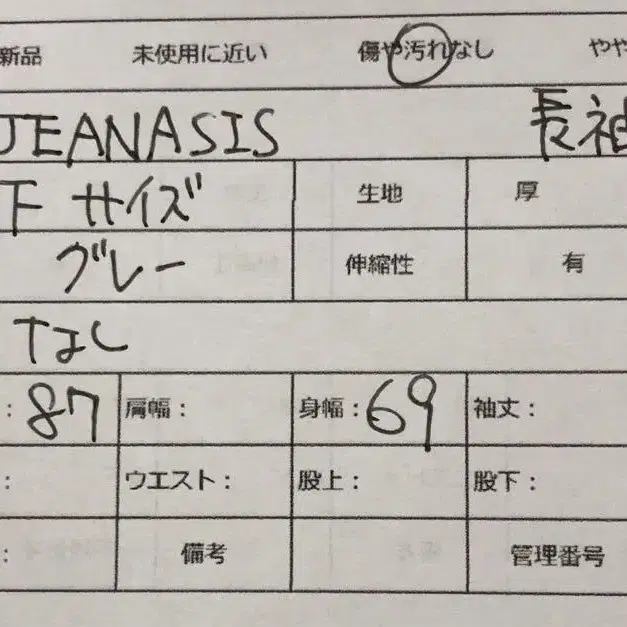 新品 未使用に近い 傷や汚れなし やや
JEANASIS 長袖
下 サイズ 生地 厚
グレー 伸縮性 有
なし
: 87 肩幅: 身幅: 69 袖丈:
: ウエスト: 股上: 股下:
: 備考 管理番号